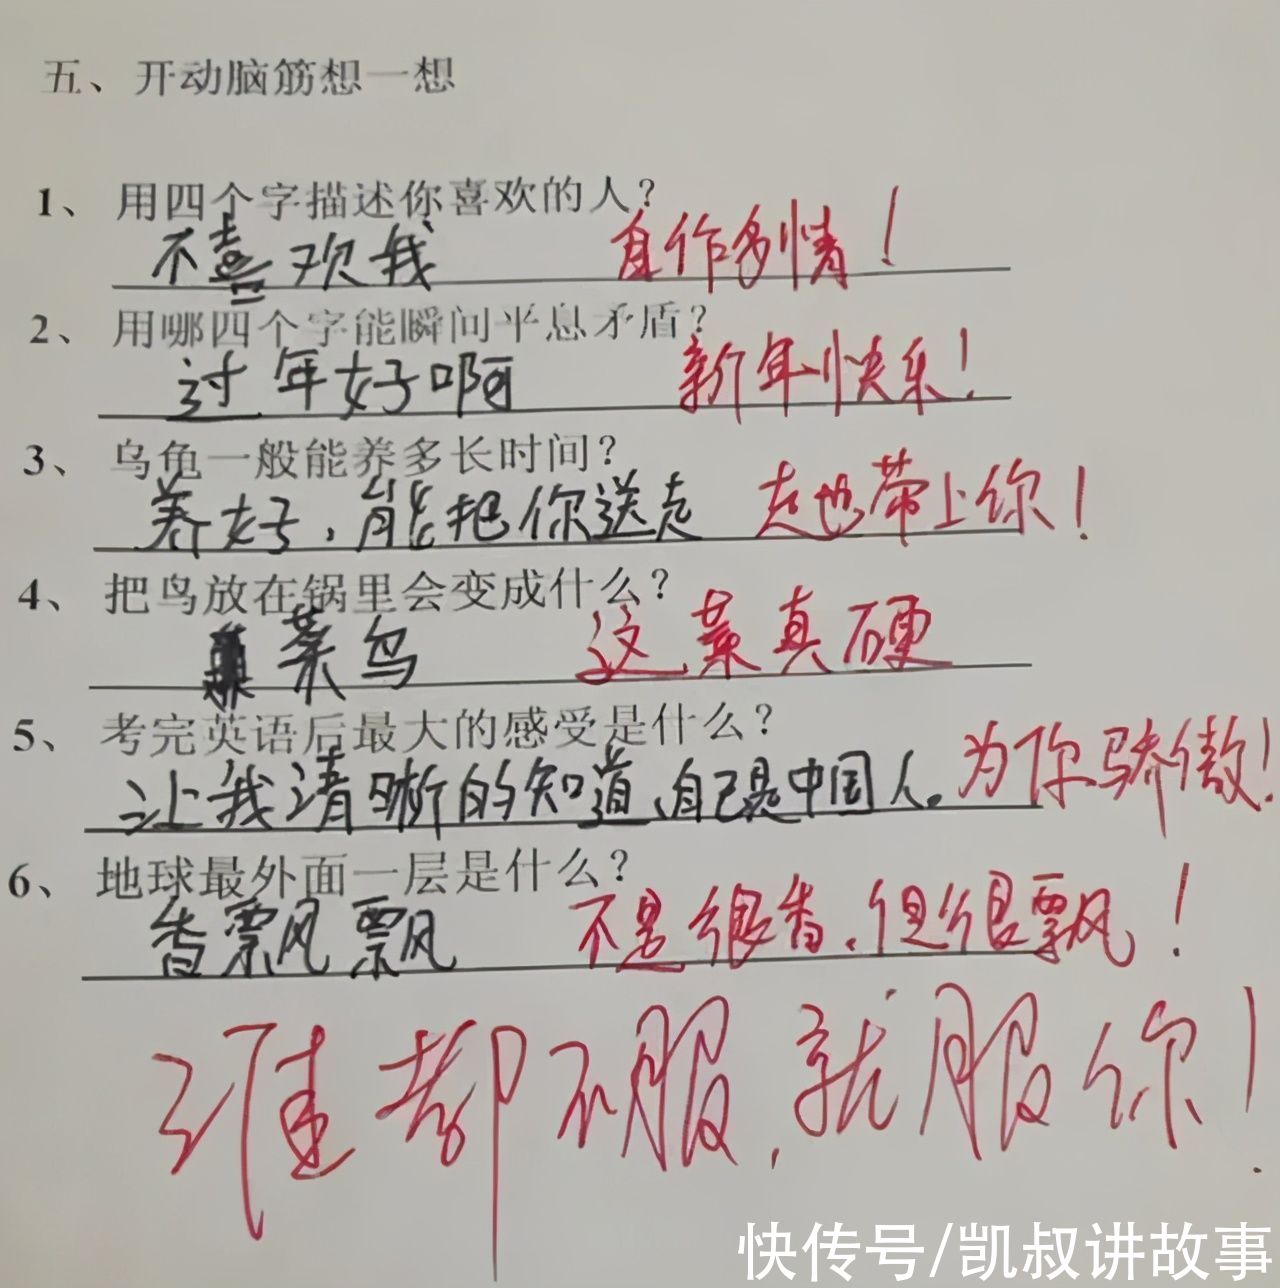 五、开动脑筋想一想
1、用四个字描述你喜欢的人？
不喜欢我 自作多情！
2、用哪四个字能瞬间平息矛盾？
过年好啊 新年快乐！
3、乌龟一般能养多长时间？
养好，能把你送走 走也带上你！
4、把鸟放在锅里会变成什么？
菜鸟 这菜真硬
5、考完英语后最大的感受是什么？
让我清晰的知道，自己是中国人。为你骄傲！
6、地球最外面一层是什么？
香飘飘 不是很香，但很飘！
谁都不服，就服你！
快传号/凯叔讲故事